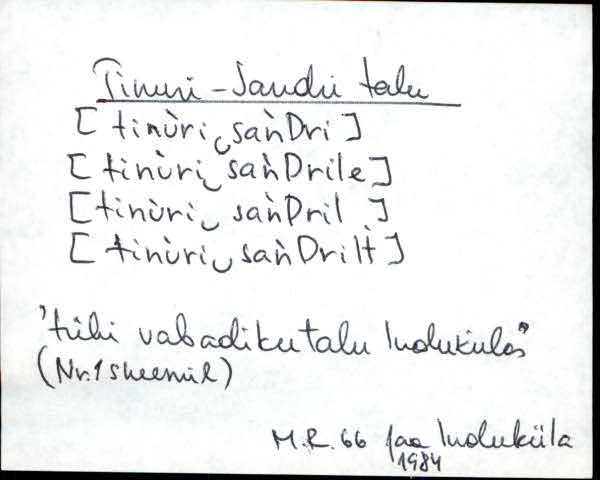 Tinuri-Sandri talu
[tinùri‿saǹDri]
[tinùri‿saǹDrile]
[tinùri‿saǹDril]
[tinùri‿saǹDrilt]
'tühi vabadikutalu Induküläs'
(Nr. 1 skeemil)
M.R. 66 Jaa Induküla
1984